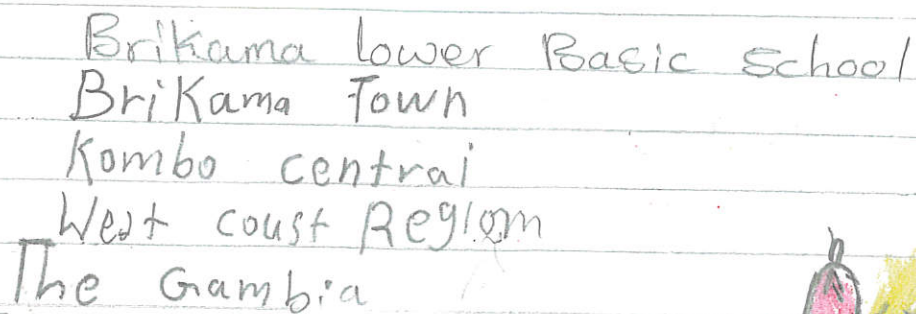 Brikama lower Basic School
Brikama Town
Kombo central
West coust Region
The Gambia